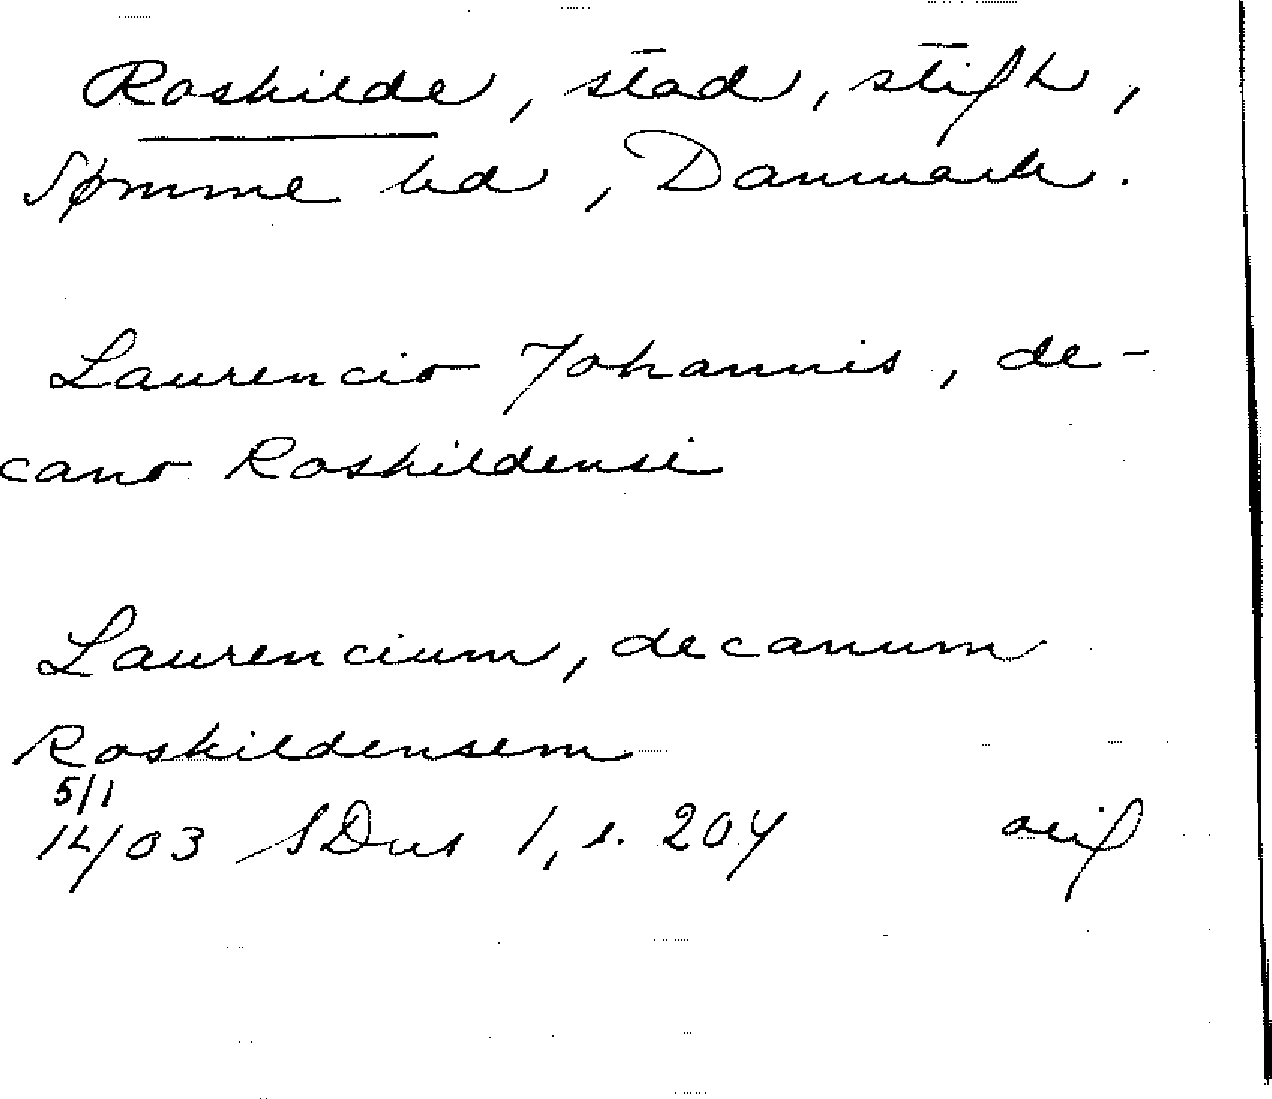 Roskilde, stad, stift,
Sømme hd, Danmark.
Laurencio Johannis, de-
cano Roskildensi
Laurencium, decanum
Roskildensem
5/1
1403 SDns 1, s. 204